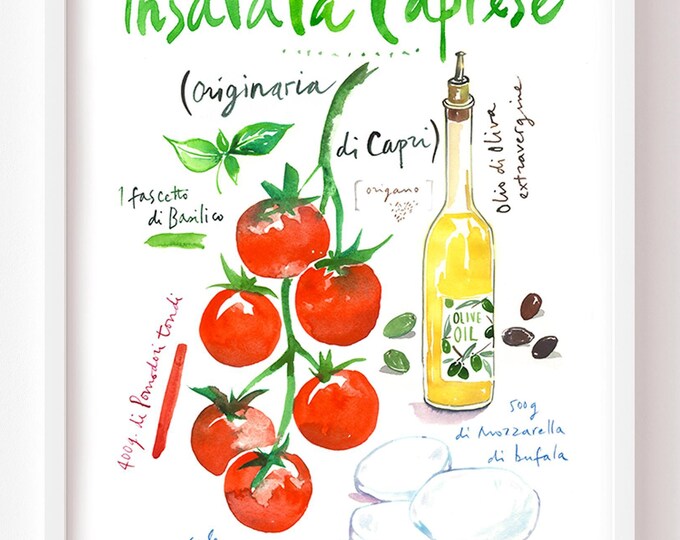 Insalata Caprese
(originaria
di Capri)
[origano]
Olio di Oliva
extravergine
1 fascetto
di Basilico
OLIVE
OIL
400g. di Pomodori tondi
500g
di Mozzarella
di bufala